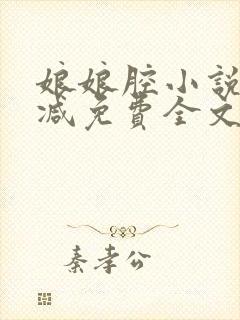 娘娘腔小說
減免費全文
秦孝公